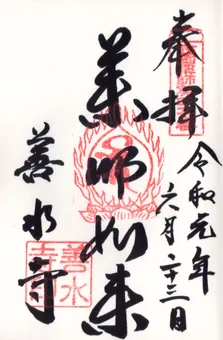 奉拝
令和元年
六月二十三日
薬師如来
善水寺
善水寺